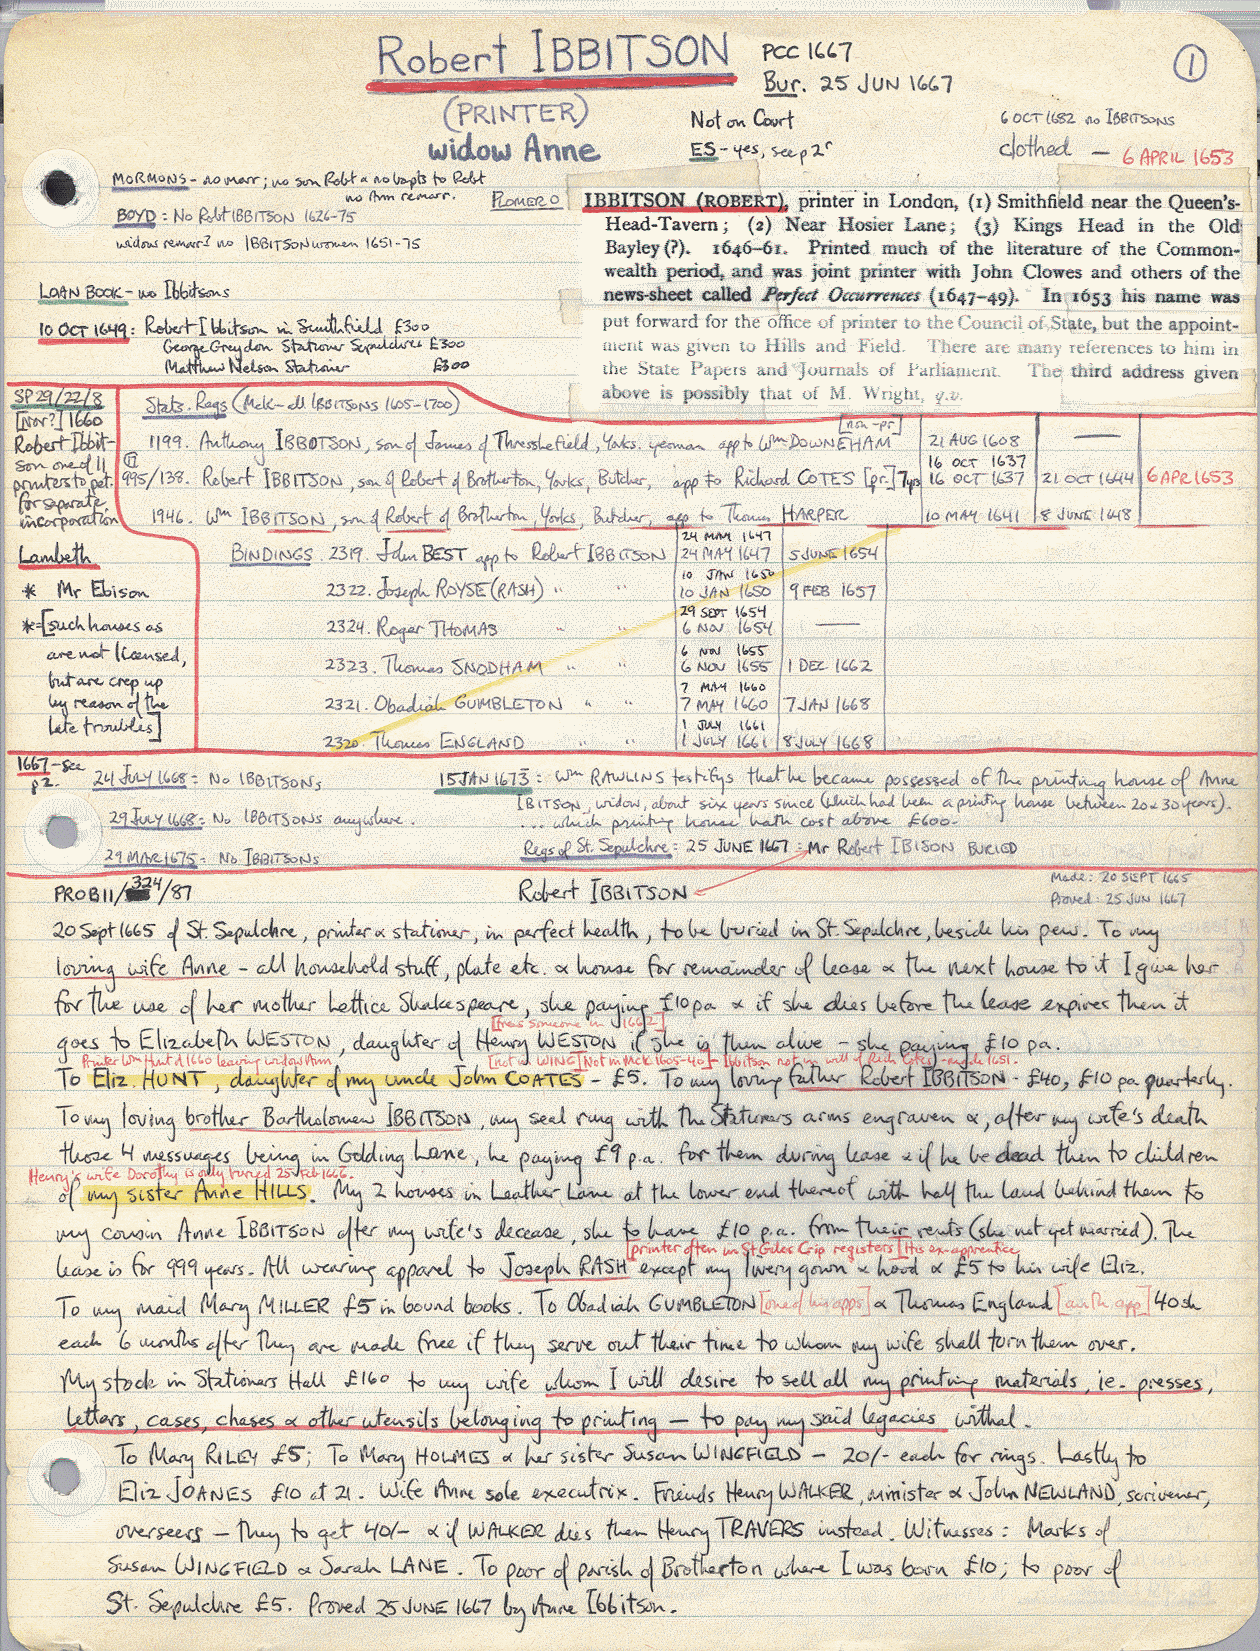 Robert IBBITSON
PCC 1667
Bur. 25 JUN 1667
1
(PRINTER)
widow Anne
Not on Court
ES - yes, see p2r
6 OCT 1682 no IBBITSONS
clothed — 6 APRIL 1653
MORMONS - no marr; no son Robt & no bapts to Robt
no Ann remarr.
BOYD: No Robt IBBITSON 1626-75
widow remar? no IBBITSON women 1651-75
PLOMER O
IBBITSON (ROBERT), printer in London, (1) Smithfield near the Queen's-
Head-Tavern; (2) Near Hosier Lane; (3) Kings Head in the Old
Bayley (?). 1646-61. Printed much of the literature of the Common-
wealth period, and was joint printer with John Clowes and others of the
news-sheet called Perfect Occurrences (1647-49). In 1653 his name was
put forward for the office of printer to the Council of State, but the appoint-
ment was given to Hills and Field. There are many references to him in
the State Papers and Journals of Parliament. The third address given
above is possibly that of M. Wright, q.v.
LOAN BOOK - no Ibbitsons
10 OCT 1649: Robert Ibbitson in Smithfield £300
George Greydon Stationer Sepulchres £300
Matthew Nelson Stationer £300
SP29/22/8
[Nov?] 1660
Robert Ibbit-
son one of 11
printers to pet.
for separate
incorporation
Stats. Regs (McK - all IBBITSONS 1605-1700)
[non-pr]
1199. Anthony IBBOTSON, son of James of Thresshefield, Yorks. yeoman app to Wm DOWNEHAM 21 AUG 1608 —
16 OCT 1637
995/138. Robert IBBITSON, son of Robert of Brotherton, Yorks, Butcher, app to Richard COTES [pr.] 7yrs 16 OCT 1637 21 OCT 1644 6 APR 1653
1946. Wm IBBITSON, son of Robert of Brotherton, Yorks, Butcher, app to Thomas HARPER 10 MAY 1641 8 JUNE 1648
Lambeth
* Mr Ebison
*=[such houses as
are not licensed,
but are crep up
by reason of the
late troubles]
24 MAY 1647
BINDINGS. 2319. John BEST app to Robert IBBITSON 24 MAY 1647 5 JUNE 1654
10 JAN 1650
2322. Joseph ROYSE (RASH) " " 10 JAN 1650 9 FEB 1657
29 SEPT 1654
2324. Roger THOMAS " " 6 NOV 1654 —
6 NOV 1655
2323. Thomas SNODHAM " " 6 NOV 1655 1 DEC 1662
7 MAY 1660
2321. Obadiah GUMBLETON " " 7 MAY 1660 7 JAN 1668
1 JULY 1661
2320. Thomas ENGLAND " " 1 JULY 1661 8 JULY 1668
1667 - see
p2.
24 JULY 1668: No IBBITSONS
29 JULY 1668: No IBBITSONS anywhere.
29 MAR 1675: No IBBITSONS
15 JAN 1673: Wm RAWLINS testifys that he became possessed of the printing house of Anne
IBITSON, widow, about six years since (which had been a printing house between 20 & 30 years).
... which printing house hath cost above £600.
Regs of St. Sepulchre: 25 JUNE 1667: Mr Robert IBISON BURIED
PROB11/324/87
Robert IBBITSON
Made: 20 SEPT 1665
Proved: 25 JUN 1667
20 Sept 1665 of St. Sepulchre, printer & stationer, in perfect health, to be buried in St. Sepulchre, beside his pew. To my
loving wife Anne - all household stuff, plate etc. & house for remainder of lease & the next house to it I give her
for the use of her mother Lettice Shakespeare, she paying £10 pa & if she dies before the lease expires then it
[frees someone in 1662]
goes to Elizabeth WESTON, daughter of Henry WESTON if she is then alive - she paying £10 pa.
Printer Wm Hunt d 1660 leaving widow Ann [not in WING] [Not in McK 1605-40] - Ibbitson not in will of Rich Cotes
To Eliz. HUNT, daughter of my uncle John COATES - £5. To my loving father Robert IBBITSON - £40, £10 pa quarterly.
To my loving brother Bartholomew IBBITSON, my seal ring with the Stationers arms engraven &, after my wife's death
those 4 messuages being in Golding Lane, he paying £9 p.a. for them during lease & if he be dead then to children
Henry's wife Dorothy is only buried 25 Feb 1666.
of my sister Anne HILLS. My 2 houses in Leather Lane at the lower end thereof with half the land behind them to
my cousin Anne IBBITSON after my wife's decease, she to have £10 p.a. from their rents (she not yet married). The
[printer often in St Giles Crip registers] [His ex-apprentice
lease is for 999 years. All wearing apparel to Joseph RASH except my livery gown & hood & £5 to his wife Eliz.
To my maid Mary MILLER £5 in bound books. To Obadiah GUMBLETON [one of his apps] & Thomas England [anoth. app] 40sh
each 6 months after they are made free if they serve out their time to whom my wife shall turn them over.
My stock in Stationers Hall £160 to my wife whom I will desire to sell all my printing materials, ie. presses,
letters, cases, chases & other utensils belonging to printing — to pay my said legacies withal.
To Mary RILEY £5; To Mary HOLMES & her sister Susan WINGFIELD - 20/- each for rings. Lastly to
Eliz JOANES £10 at 21. Wife Anne sole executrix. Friends Henry WALKER, minister & John NEWLAND, scrivener,
overseers - they to get 40/- & if WALKER dies then Henry TRAVERS instead. Witnesses: Marks of
Susan WINGFIELD & Sarah LANE. To poor of parish of Brotherton where I was born £10; to poor of
St. Sepulchre £5. Proved 25 JUNE 1667 by Anne Ibbitson.